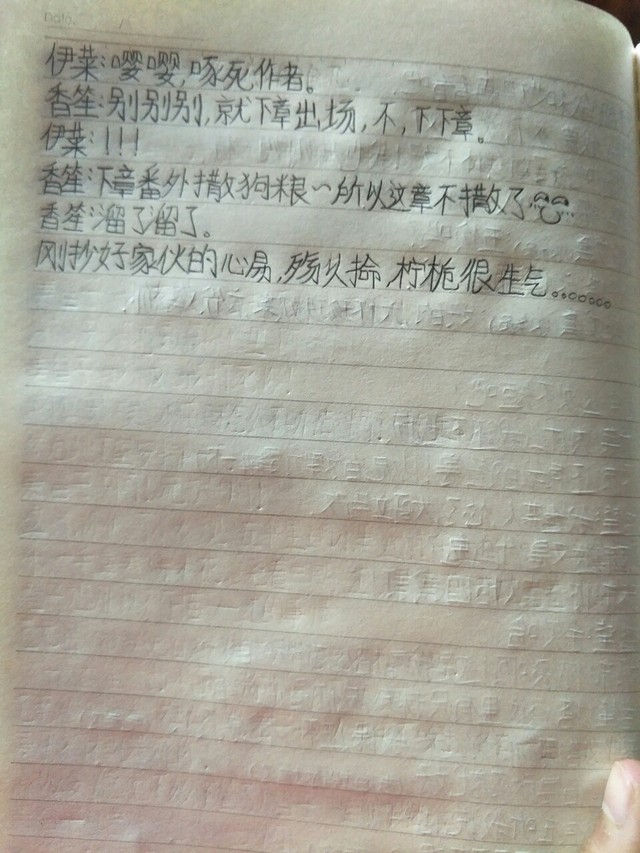 Date.
伊莱:嘤嘤,啄死作者。
香笙:别别别,就下章出场,不,下下章。
伊莱:!!!
香笙:下章番外撒狗粮~所以这章不撒了
香笙:溜了溜了。
刚抄好家伙的心易,残以掵,柠栀很生气。。。。。。。